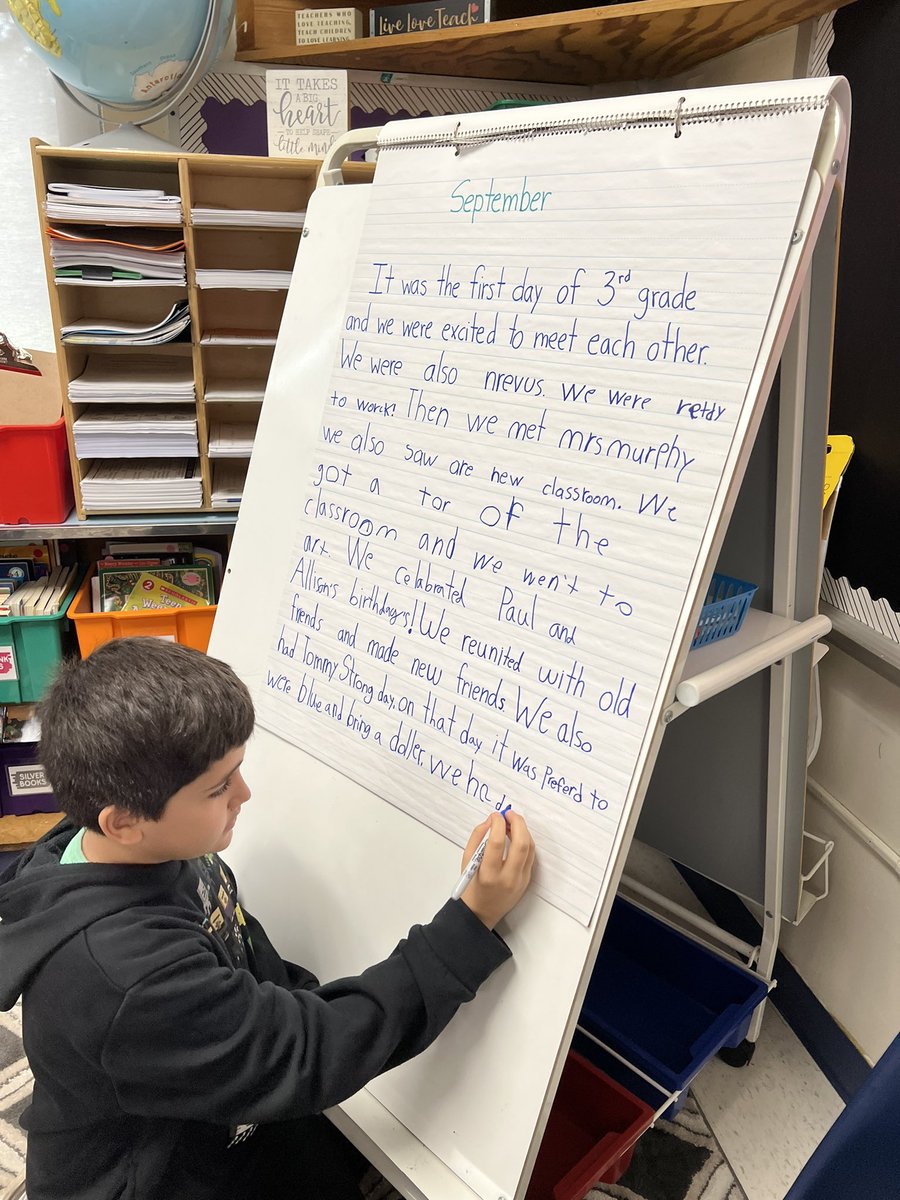 TEACHERS WHO
LOVE TEACHING,
TEACH CHILDREN
TO LOVE LEARNING
Live Love Teach
IT TAKES
A BIG
heart
TO HELP SHAPE
little minds
September
It was the first day of 3rd grade
and we were excited to meet each other.
We were also nrevus. We were retdy
to worck! Then we met mrs murphy
we also saw are new classroom. We
got a tor of the
classroom and we wen't to
art. We celabrated Paul and
Allison's birthdays! We reunited with old
friends and made new friends. We also
had Tommy Strong day, on that day it was Preferd to
were blue and bring a doller. We ha
SILVER
BOOKS